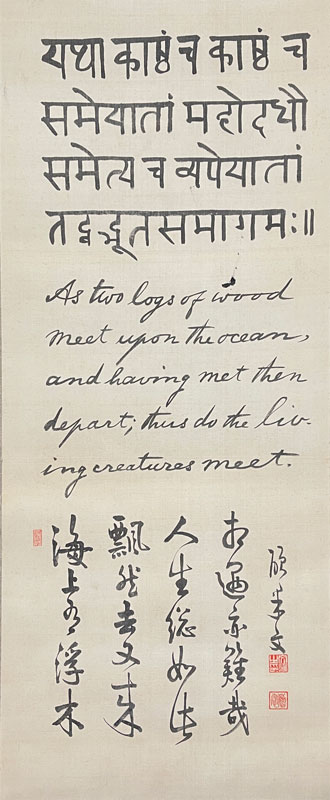 यथा काष्ठं च काष्ठं च
समेयातां महोदधौ
समेत्य च व्यपेयातां
तद्वद्भूतसमागमः॥
As two logs of wood
meet upon the ocean,
and having met then
depart; thus do the liv-
ing creatures meet.
海上有浮木
飄然去又来
人生総如此
相遇亦難哉